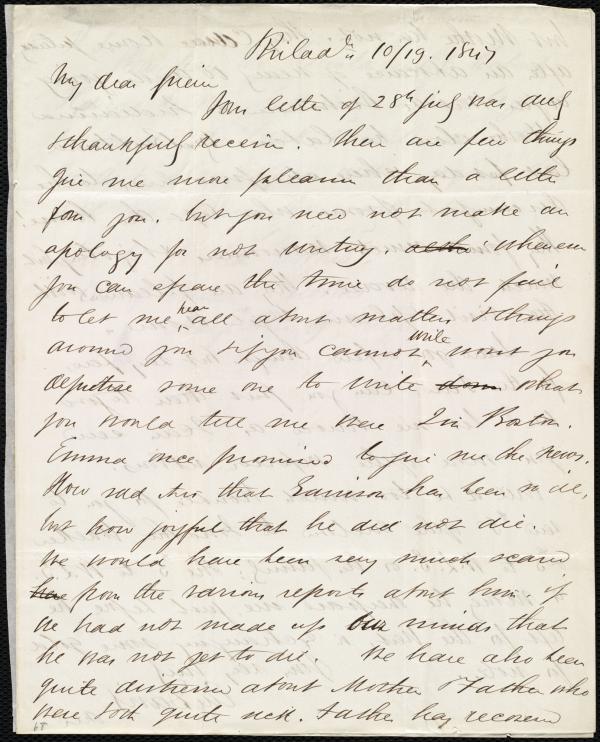 Philada 10/19. 1847
My dear friend
Your letter of 28th July was duly
& thankfully received. There are few things
give me more pleasure than a letter
from you. but you need not make an
apology for not writing. whenever
you can spare the time do not fail
to let me hear all about matters & things
around you & if you cannot write wont you
deputise some one to write down what
you would tell me were I in Boston.
Emma once promised to give me the news.
How sad tis that Garrison has been so ill,
but how joyful that he did not die.
We would have been very much scared
here from the various reports about him. if
we had not made up our minds that
he was not yet to die. We have also been
quite distressed about Mother & Father who
were both quite sick. Father has recovered